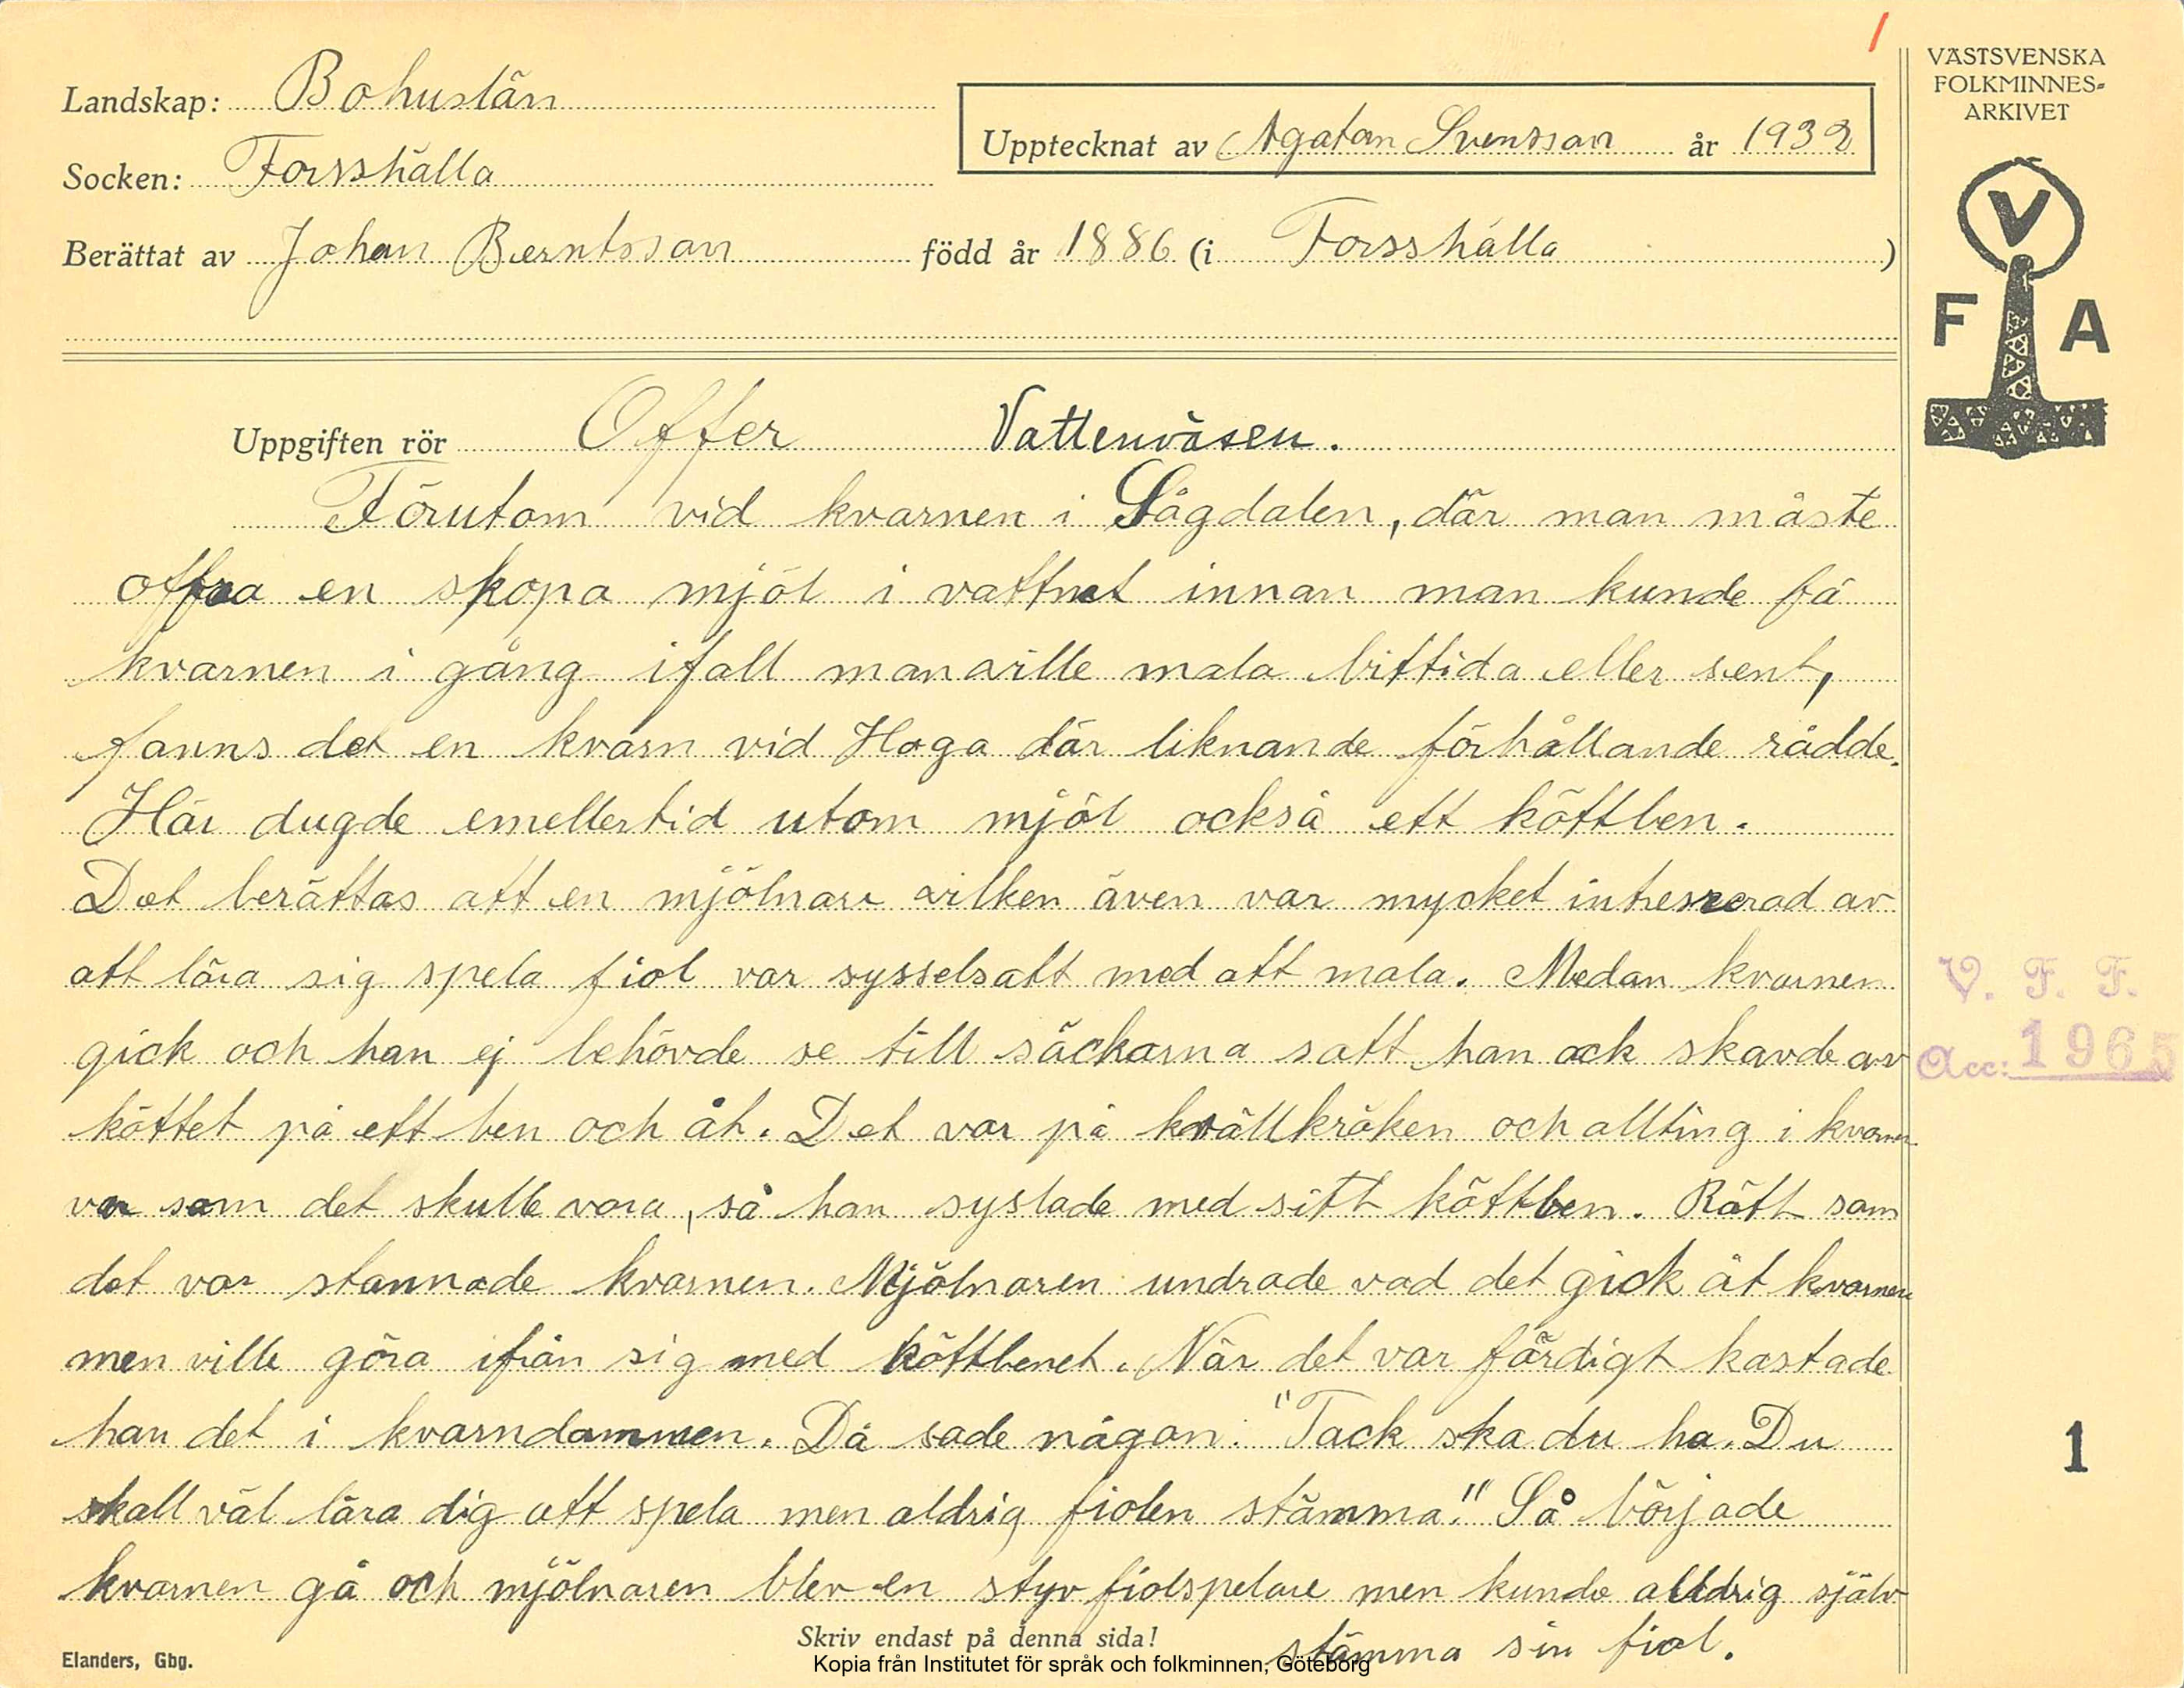 VÄSTSVENSKA
FOLKMINNES-
ARKIVET
V
F A
Landskap: Bohuslän
Upptecknat av Agaton Svensson år 1932
Socken: Forsshälla
Berättat av Johan Berntsson född år 1886 (i Forsshälla)
Uppgiften rör Offer Vattenväsen.
Förutom vid kvarnen i Sågdalen, där man måste
offra en skopa mjöl i vattnet innan man kunde få
kvarnen i gång ifall man ville mala bittida eller sent,
fanns det en kvarn vid Hoga där liknande förhållande rådde.
Här dugde emellertid utom mjöl också ett köttben.
Det berättas att en mjölnare vilken även var mycket intresserad av
att lära sig spela fiol var sysselsatt med att mala. Medan kvarnen
gick och han ej behövde se till säckarna satt han ock skavde av
köttet på ett ben och åt. Det var på kvällkröken och allting i kvarnen
var som det skulle vara, så han syslade med sitt köttben. Rätt som
det var stannade kvarnen. Mjölnaren undrade vad det gick åt kvarnen
men ville göra ifrån sig med köttbenet. När det var färdigt kastade
han det i kvarndammen. Då sade någon: "Tack ska du ha. Du
skall väl lära dig att spela men aldrig fiolen stämma." Så började
kvarnen gå och mjölnaren blev en styv fiolspelare men kunde alldrig själv
stämma sin fiol.
V. F. F.
Acc: 1965
1
Skriv endast på denna sida!
Elanders, Gbg.
Kopia från Institutet för språk och folkminnen, Göteborg